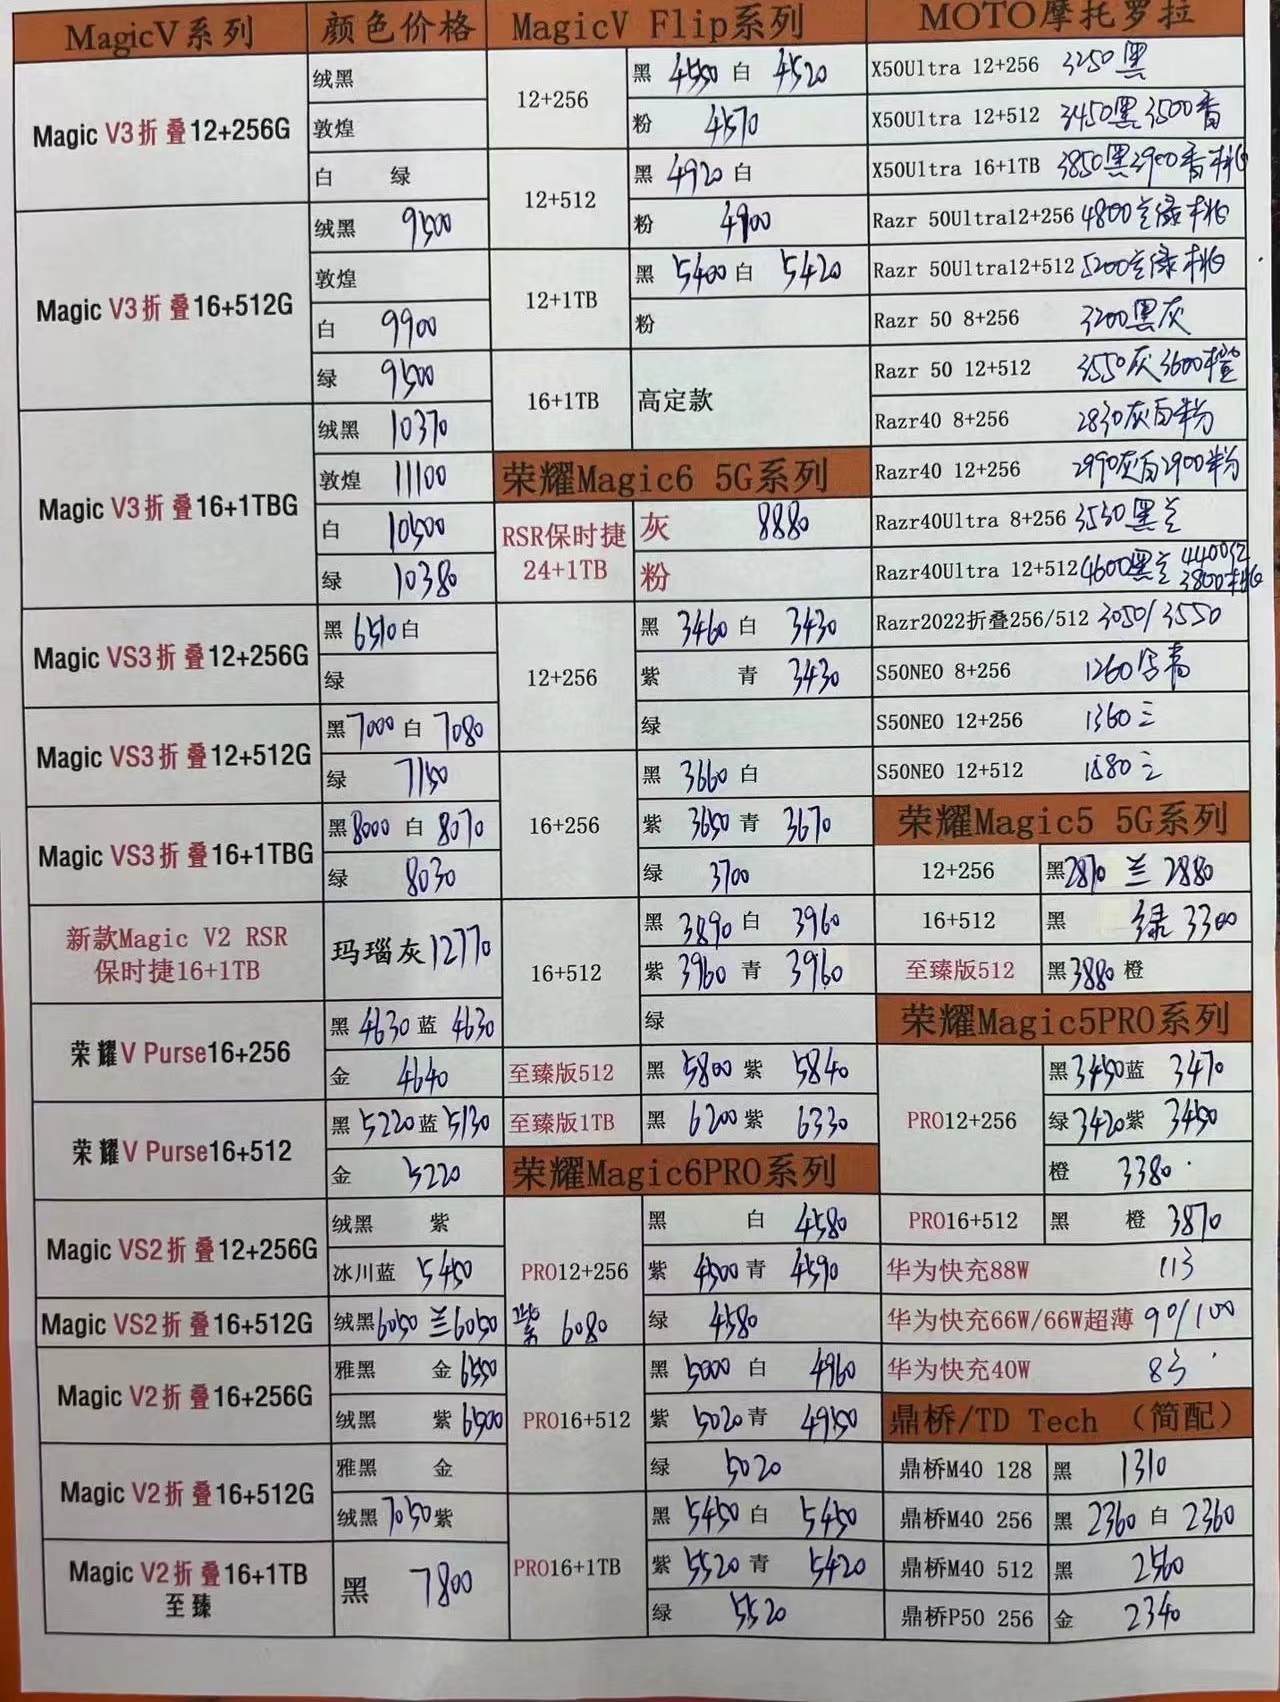 MagicV系列 颜色价格
Magic V3折叠12+256G
绒黑
敦煌
白 绿
Magic V3折叠16+512G
绒黑 9500
敦煌
白 9900
绿 9500
Magic V3折叠16+1TBG
绒黑 10370
敦煌 11100
白 10500
绿 10380
Magic VS3折叠12+256G
黑 6510 白
绿
Magic VS3折叠12+512G
黑 7000 白 7080
绿 7150
Magic VS3折叠16+1TBG
黑 8000 白 8070
绿 8030
新款Magic V2 RSR
保时捷16+1TB
玛瑙灰 12770
荣耀V Purse16+256
黑 4630 蓝 4630
金 4640
荣耀V Purse16+512
黑 5220 蓝 5130
金 5220
Magic VS2折叠12+256G
绒黑 紫
冰川蓝 5450
Magic VS2折叠16+512G
绒黑 6050 兰 6050 紫 6080
Magic V2折叠16+256G
雅黑 金 6550
绒黑 紫 6500
Magic V2折叠16+512G
雅黑 金
绒黑 7050 紫
Magic V2折叠16+1TB
至臻
黑 7800
MagicV Flip系列
12+256
黑 4550 白 4520
粉 4570
12+512
黑 4920 白
粉 4900
12+1TB
黑 5400 白 5420
粉
16+1TB 高定款
荣耀Magic6 5G系列
RSR保时捷
24+1TB
灰 8880
粉
12+256
黑 3460 白 3430
紫 青 3430
绿
16+256
黑 3660 白
紫 3650 青 3670
绿 3700
16+512
黑 3890 白 3960
紫 3960 青 3960
绿
至臻版512 黑 5800 紫 5840
至臻版1TB 黑 6200 紫 6330
荣耀Magic6PRO系列
PRO12+256
黑 白 4580
紫 4500 青 4590
绿 4580
PRO16+512
黑 5000 白 4960
紫 5020 青 4950
绿 5020
PRO16+1TB
黑 5450 白 5450
紫 5520 青 5420
绿 5520
MOTO摩托罗拉
X50Ultra 12+256 3250黑
X50Ultra 12+512 3450黑3500香
X50Ultra 16+1TB 3850黑3900香桃
Razr 50Ultra12+256 4800兰绿桃
Razr 50Ultra12+512 5200兰绿桃
Razr 50 8+256 3200黑灰
Razr 50 12+512 3550灰3600橙
Razr40 8+256 2830灰白粉
Razr40 12+256 2990灰白2900粉
Razr40Ultra 8+256 3530黑兰
Razr40Ultra 12+512 4600黑兰 4400红
3800桃
Razr2022折叠256/512 3050/3550
S50NEO 8+256 1260
S50NEO 12+256 1360三
S50NEO 12+512 1580三
荣耀Magic5 5G系列
12+256 黑2870 兰 2880
16+512 黑 绿 3300
至臻版512 黑3880 橙
荣耀Magic5PRO系列
PRO12+256
黑3450 蓝 3470
绿3420 紫 3450
橙 3380
PRO16+512 黑 橙 3870
华为快充88W 113
华为快充66W/66W超薄 90/100
华为快充40W 83
鼎桥/TD Tech （简配）
鼎桥M40 128 黑 1310
鼎桥M40 256 黑 2360 白 2360
鼎桥M40 512 黑 2560
鼎桥P50 256 金 2340